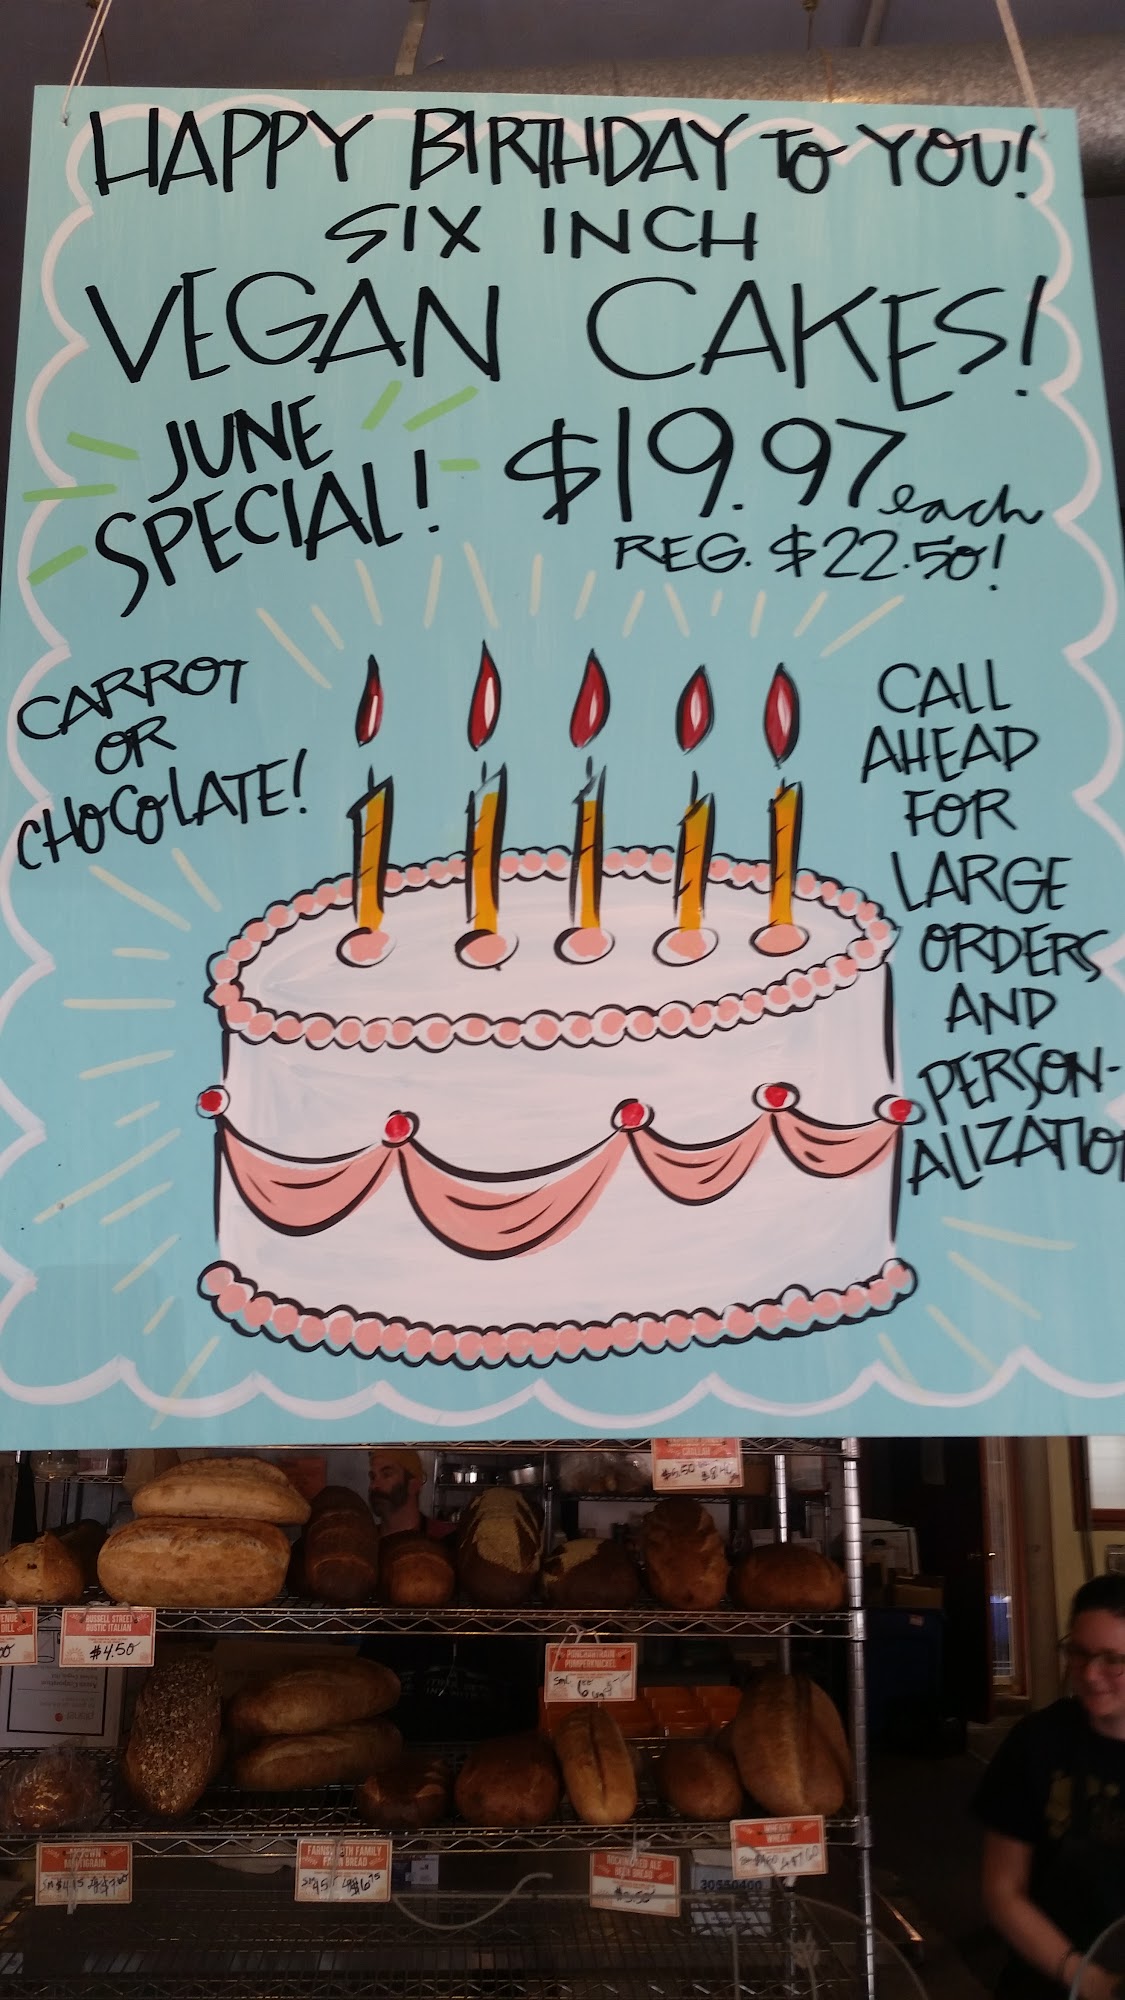 HAPPY BIRTHDAY to YOU!
SIX INCH
VEGAN CAKES!
JUNE
SPECIAL!
$19.97 each
REG. $22.50!
CARROT
OR
CHOCOLATE!
CALL
AHEAD
FOR
LARGE
ORDERS
AND
PERSON-
ALIZATIO
DILL
RUSSELL STREET
RUSTIC ITALIAN
$4.50
PONCHARTRAIN
PUMPERNICKEL
FARNSWORTH FAMILY
FARM BREAD
ALE
BEER BREAD
$5.50
WHEAT
30550400